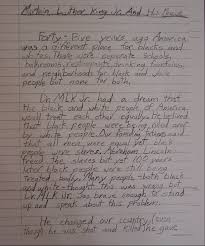 Martin Luther King Jr. And His Cause
Forty-Five years ago America
was a different place for blacks and
whites. There were separate schools,
bathrooms, restaurants, drinking fountains,
and neighborhoods for black and white
people but none for both.
Dr. MLK Jr. had a dream that
the black and white people of America
would treat each other equally. He believed
that black people were being
by white people. Our founding fathers said
that all men were equal yet black
people were slaves. Abraham Lincoln
freed the slaves but yet 100 years
later black people were still being
treated badly. Many people - both black
and white - thought this was wrong but
Dr. MLK Jr. was brave enough to stand
up and speak about this problem.
He changed our country even
though he was shot and killed. He gave